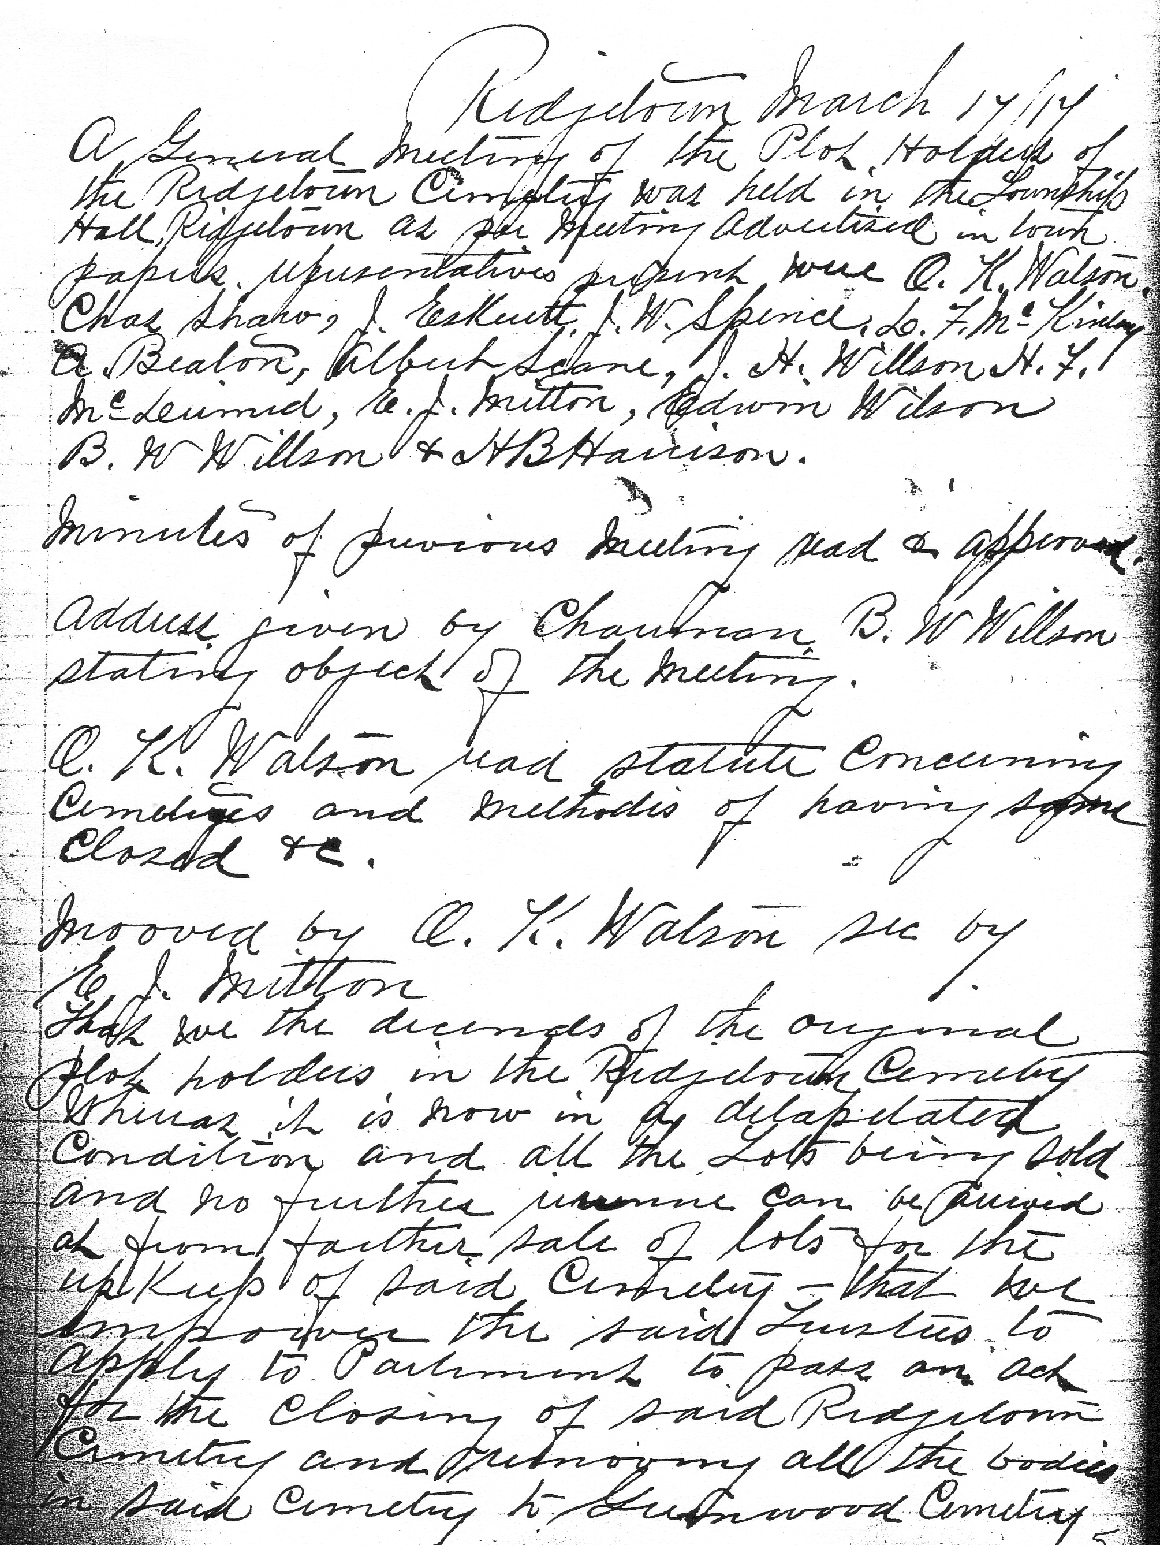 Ridgetown March 17/14
A General Meeting of the Plot Holders of
the Ridgetown Cemetery was held in the Township
Hall Ridgetown as per Meeting Advertised in town
papers. representatives present were O. K. Watson,
Chas Shaw, J. Eskritt, J. W. Spence, L. F. McKinlay
A. Beaton, Albert Scane, J. H. Willson H. F.
McDiarmid, E. J. Mitton, Edwin Wilson
B. W Willson & H B Harrison.
Minutes of previous Meeting read & approved.
Address given by Chairman, B. W Willson
stating object of the Meeting.
O. K. Watson read statute Concerning
Cemeteries and Methodis of having same
Closed &c.
Mooved by O. K. Watson sec by
E. J. Mitton
That we the decends of the original
plot holders in the Ridgetown Cemetery
Whereas it is now in a delapetated
Condition and all the Lots being sold
and no further revenue can be arrived
at from farther sale of lots for the
up Keep of said Cemetery - that we
empower the said Trustees to
apply to Parliment to pass an act
for the closing of said Ridgetown
Cemetry and removing all the bodies
in said Cemetry to Greenwood Cemetry -